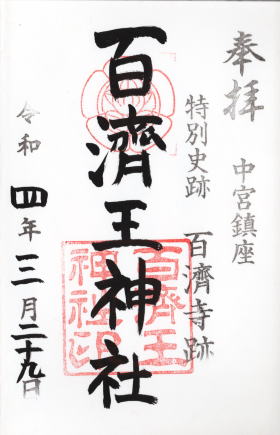 奉拝
中宮鎮座
特別史跡 百済寺跡
百濟王神社
百濟王神社印
令和四年三月二十九日